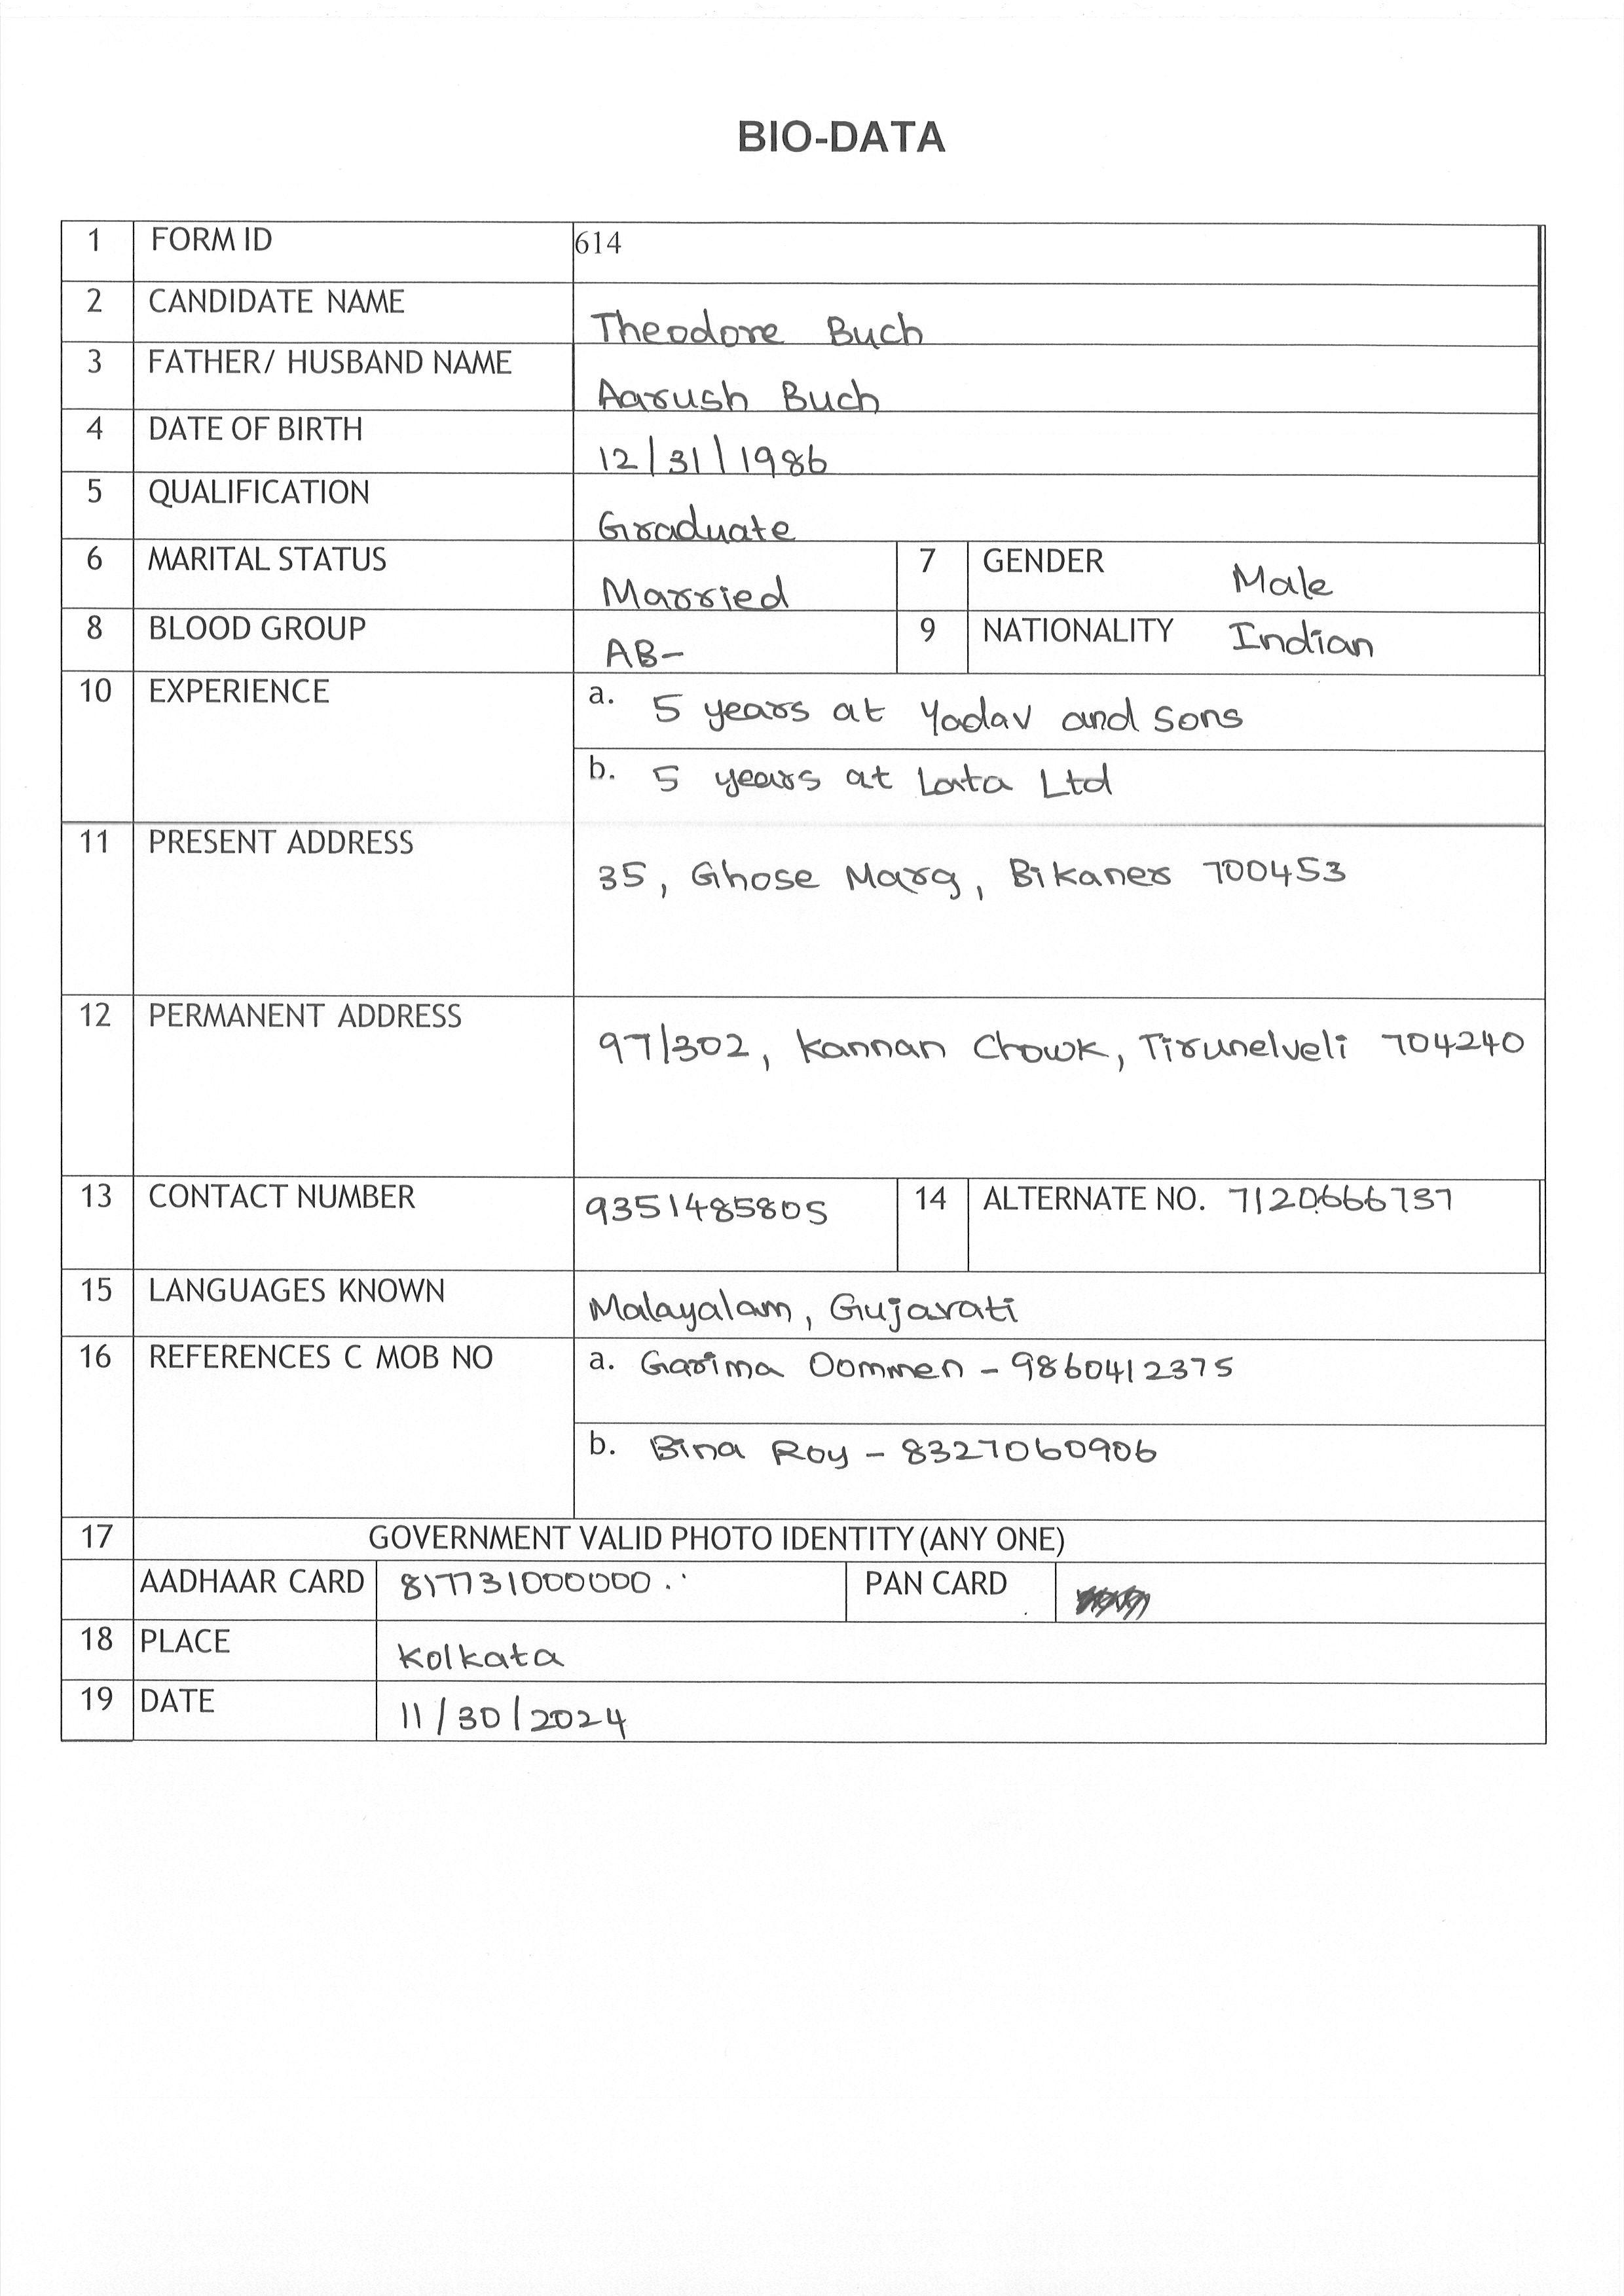 BIO-DATA
1 FORM ID 614
2 CANDIDATE NAME Theodore Buch
3 FATHER/ HUSBAND NAME Aarush Buch
4 DATE OF BIRTH 12/31/1986
5 QUALIFICATION Graduate
6 MARITAL STATUS Married 7 GENDER Male
8 BLOOD GROUP AB- 9 NATIONALITY Indian
10 EXPERIENCE a. 5 years at Yadav and Sons
b. 5 years at Lata Ltd
11 PRESENT ADDRESS 35, Ghose Marg, Bikaner 700453
12 PERMANENT ADDRESS 97/302, Kannan Chowk, Tirunelveli 704240
13 CONTACT NUMBER 9351485805 14 ALTERNATE NO. 7120666737
15 LANGUAGES KNOWN Malayalam, Gujarati
16 REFERENCES C MOB NO a. Garima Oommen - 9860412375
b. Bina Roy - 8327060906
17 GOVERNMENT VALID PHOTO IDENTITY (ANY ONE)
AADHAAR CARD 817731000000 PAN CARD
18 PLACE Kolkata
19 DATE 11/30/2024